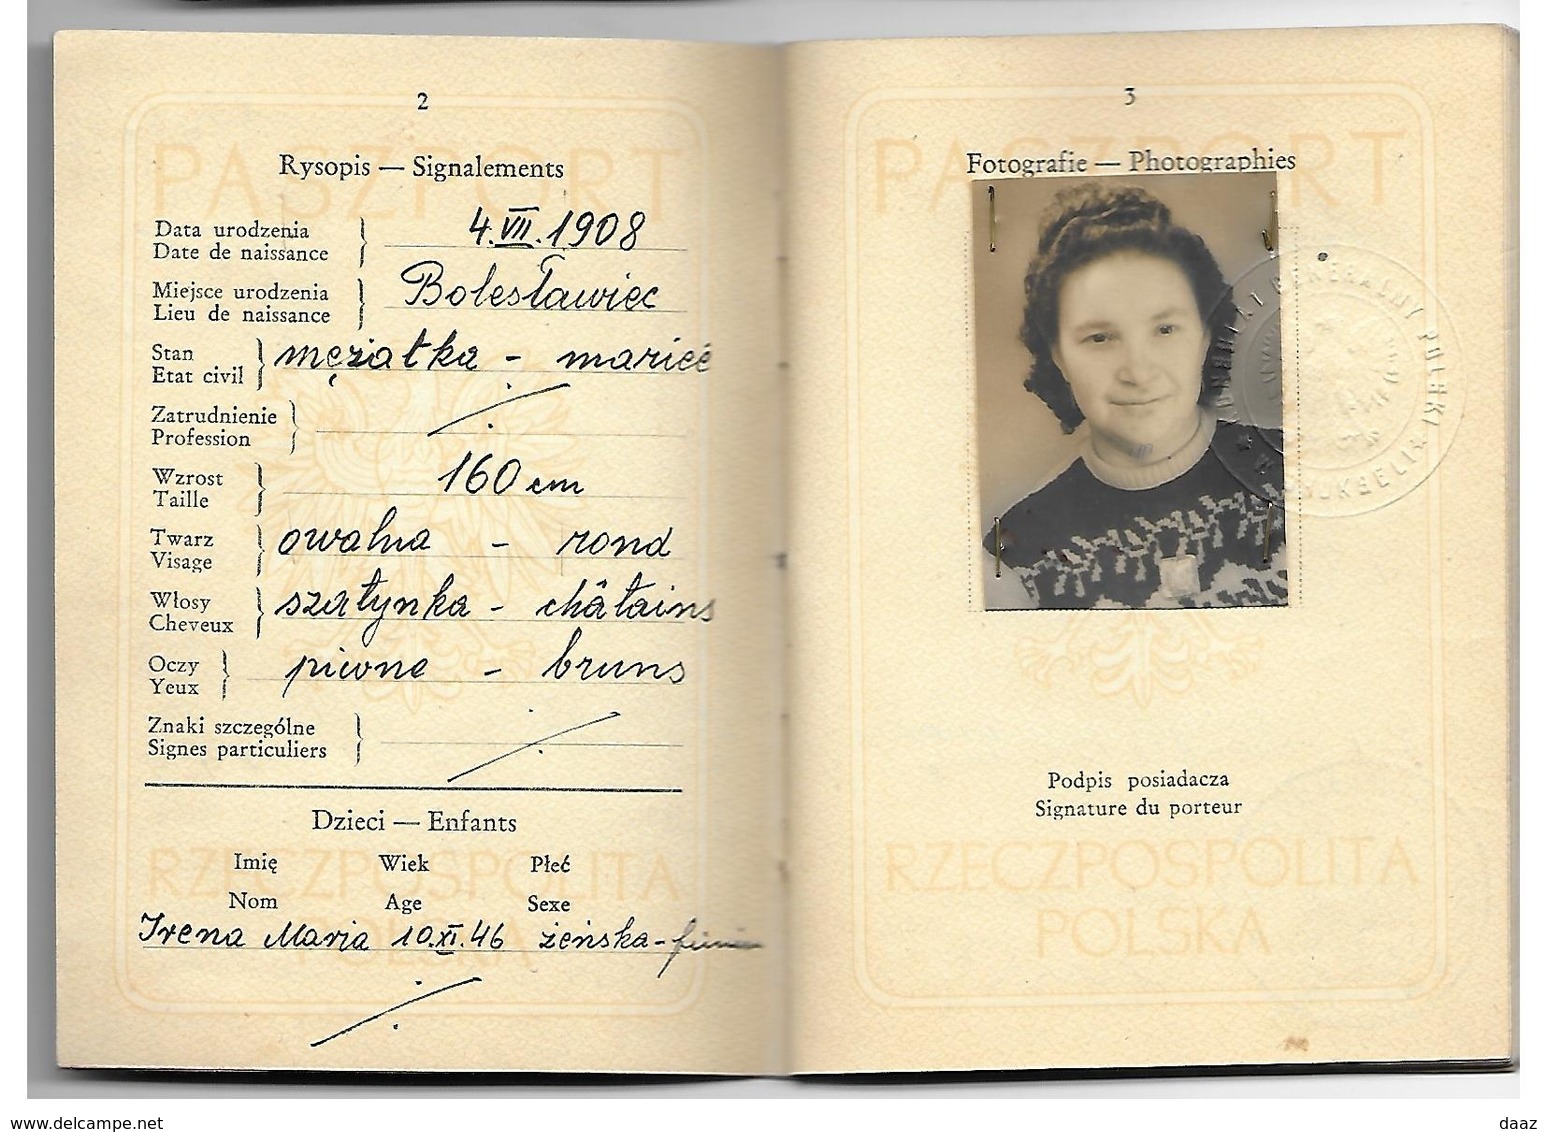 2
PASZPORT
Rysopis — Signalements
Data urodzenia
Date de naissance
4.VII.1908
Miejsce urodzenia
Lieu de naissance
Bolesławiec
Stan
Etat civil
mężatka - marieé
Zatrudnienie
Profession
Wzrost
Taille
160 cm
Twarz
Visage
owalna - rond
Włosy
Cheveux
szatynka - châtains
Oczy
Yeux
piwne - bruns
Znaki szczególne
Signes particuliers
Dzieci — Enfants
Imię Wiek Płeć
Nom Age Sexe
Irena Maria 10.XI.46 żeńska -
RZECZPOSPOLITA
POLSKA
3
PASZPORT
Fotografie — Photographies
GENERALNY POLSKI
Podpis posiadacza
Signature du porteur
RZECZPOSPOLITA
POLSKA
www.delcampe.net
daaz